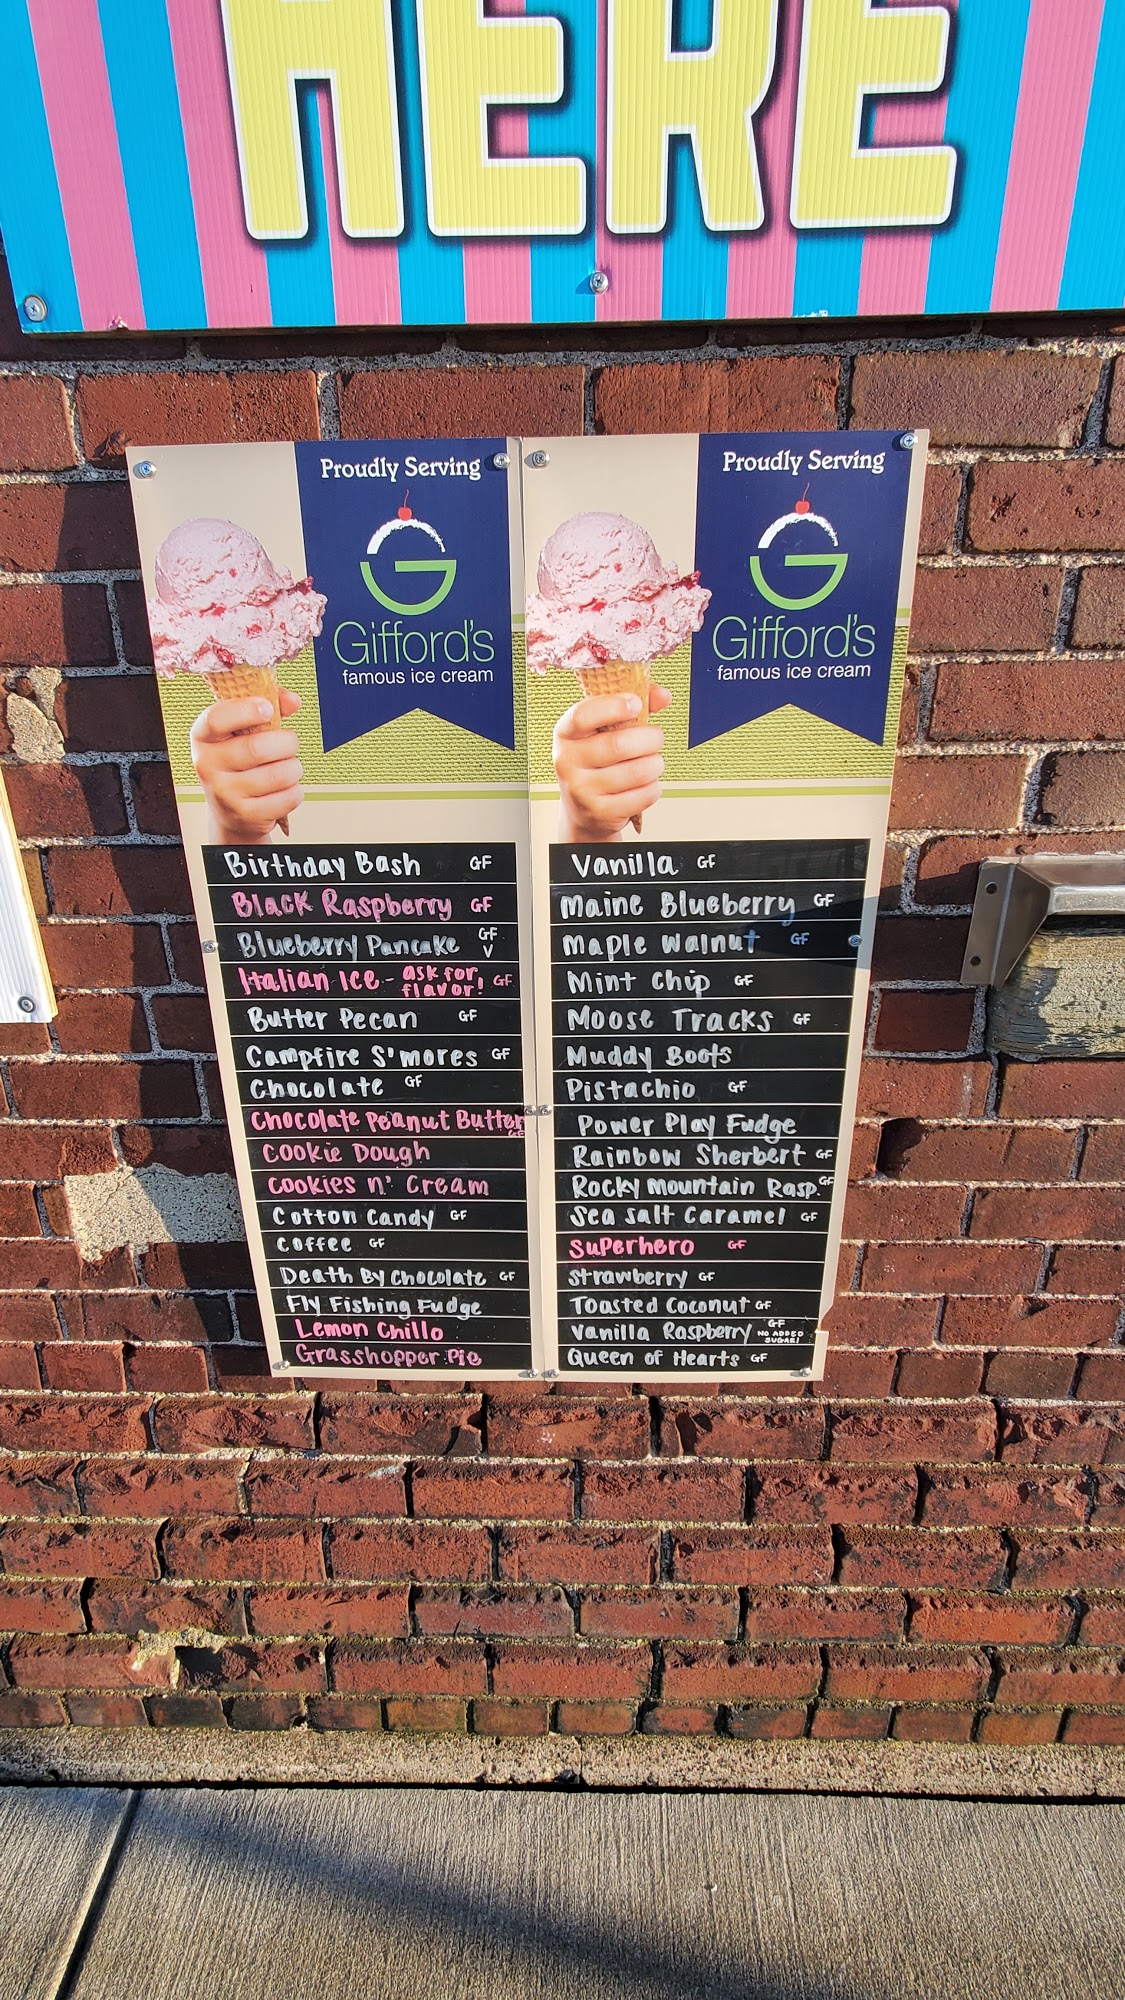 HERE
Proudly Serving
G
Gifford's
famous ice cream
Birthday Bash GF
Black Raspberry GF
Blueberry Pancake GF V
Italian Ice - ask for flavor! GF
Butter Pecan GF
Campfire S'mores GF
Chocolate GF
Chocolate Peanut Butter GF
Cookie Dough
Cookies n' Cream
Cotton Candy GF
Coffee GF
Death By Chocolate GF
Fly Fishing Fudge
Lemon Chillo
Grasshopper Pie
Proudly Serving
G
Gifford's
famous ice cream
Vanilla GF
Maine Blueberry GF
Maple Walnut GF
Mint Chip GF
Moose Tracks GF
Muddy Boots
Pistachio GF
Power Play Fudge
Rainbow Sherbert GF
Rocky Mountain Rasp. GF
Sea Salt Caramel GF
Superhero GF
Strawberry GF
Toasted Coconut GF
Vanilla Raspberry GF NO ADDED SUGAR!
Queen of Hearts GF